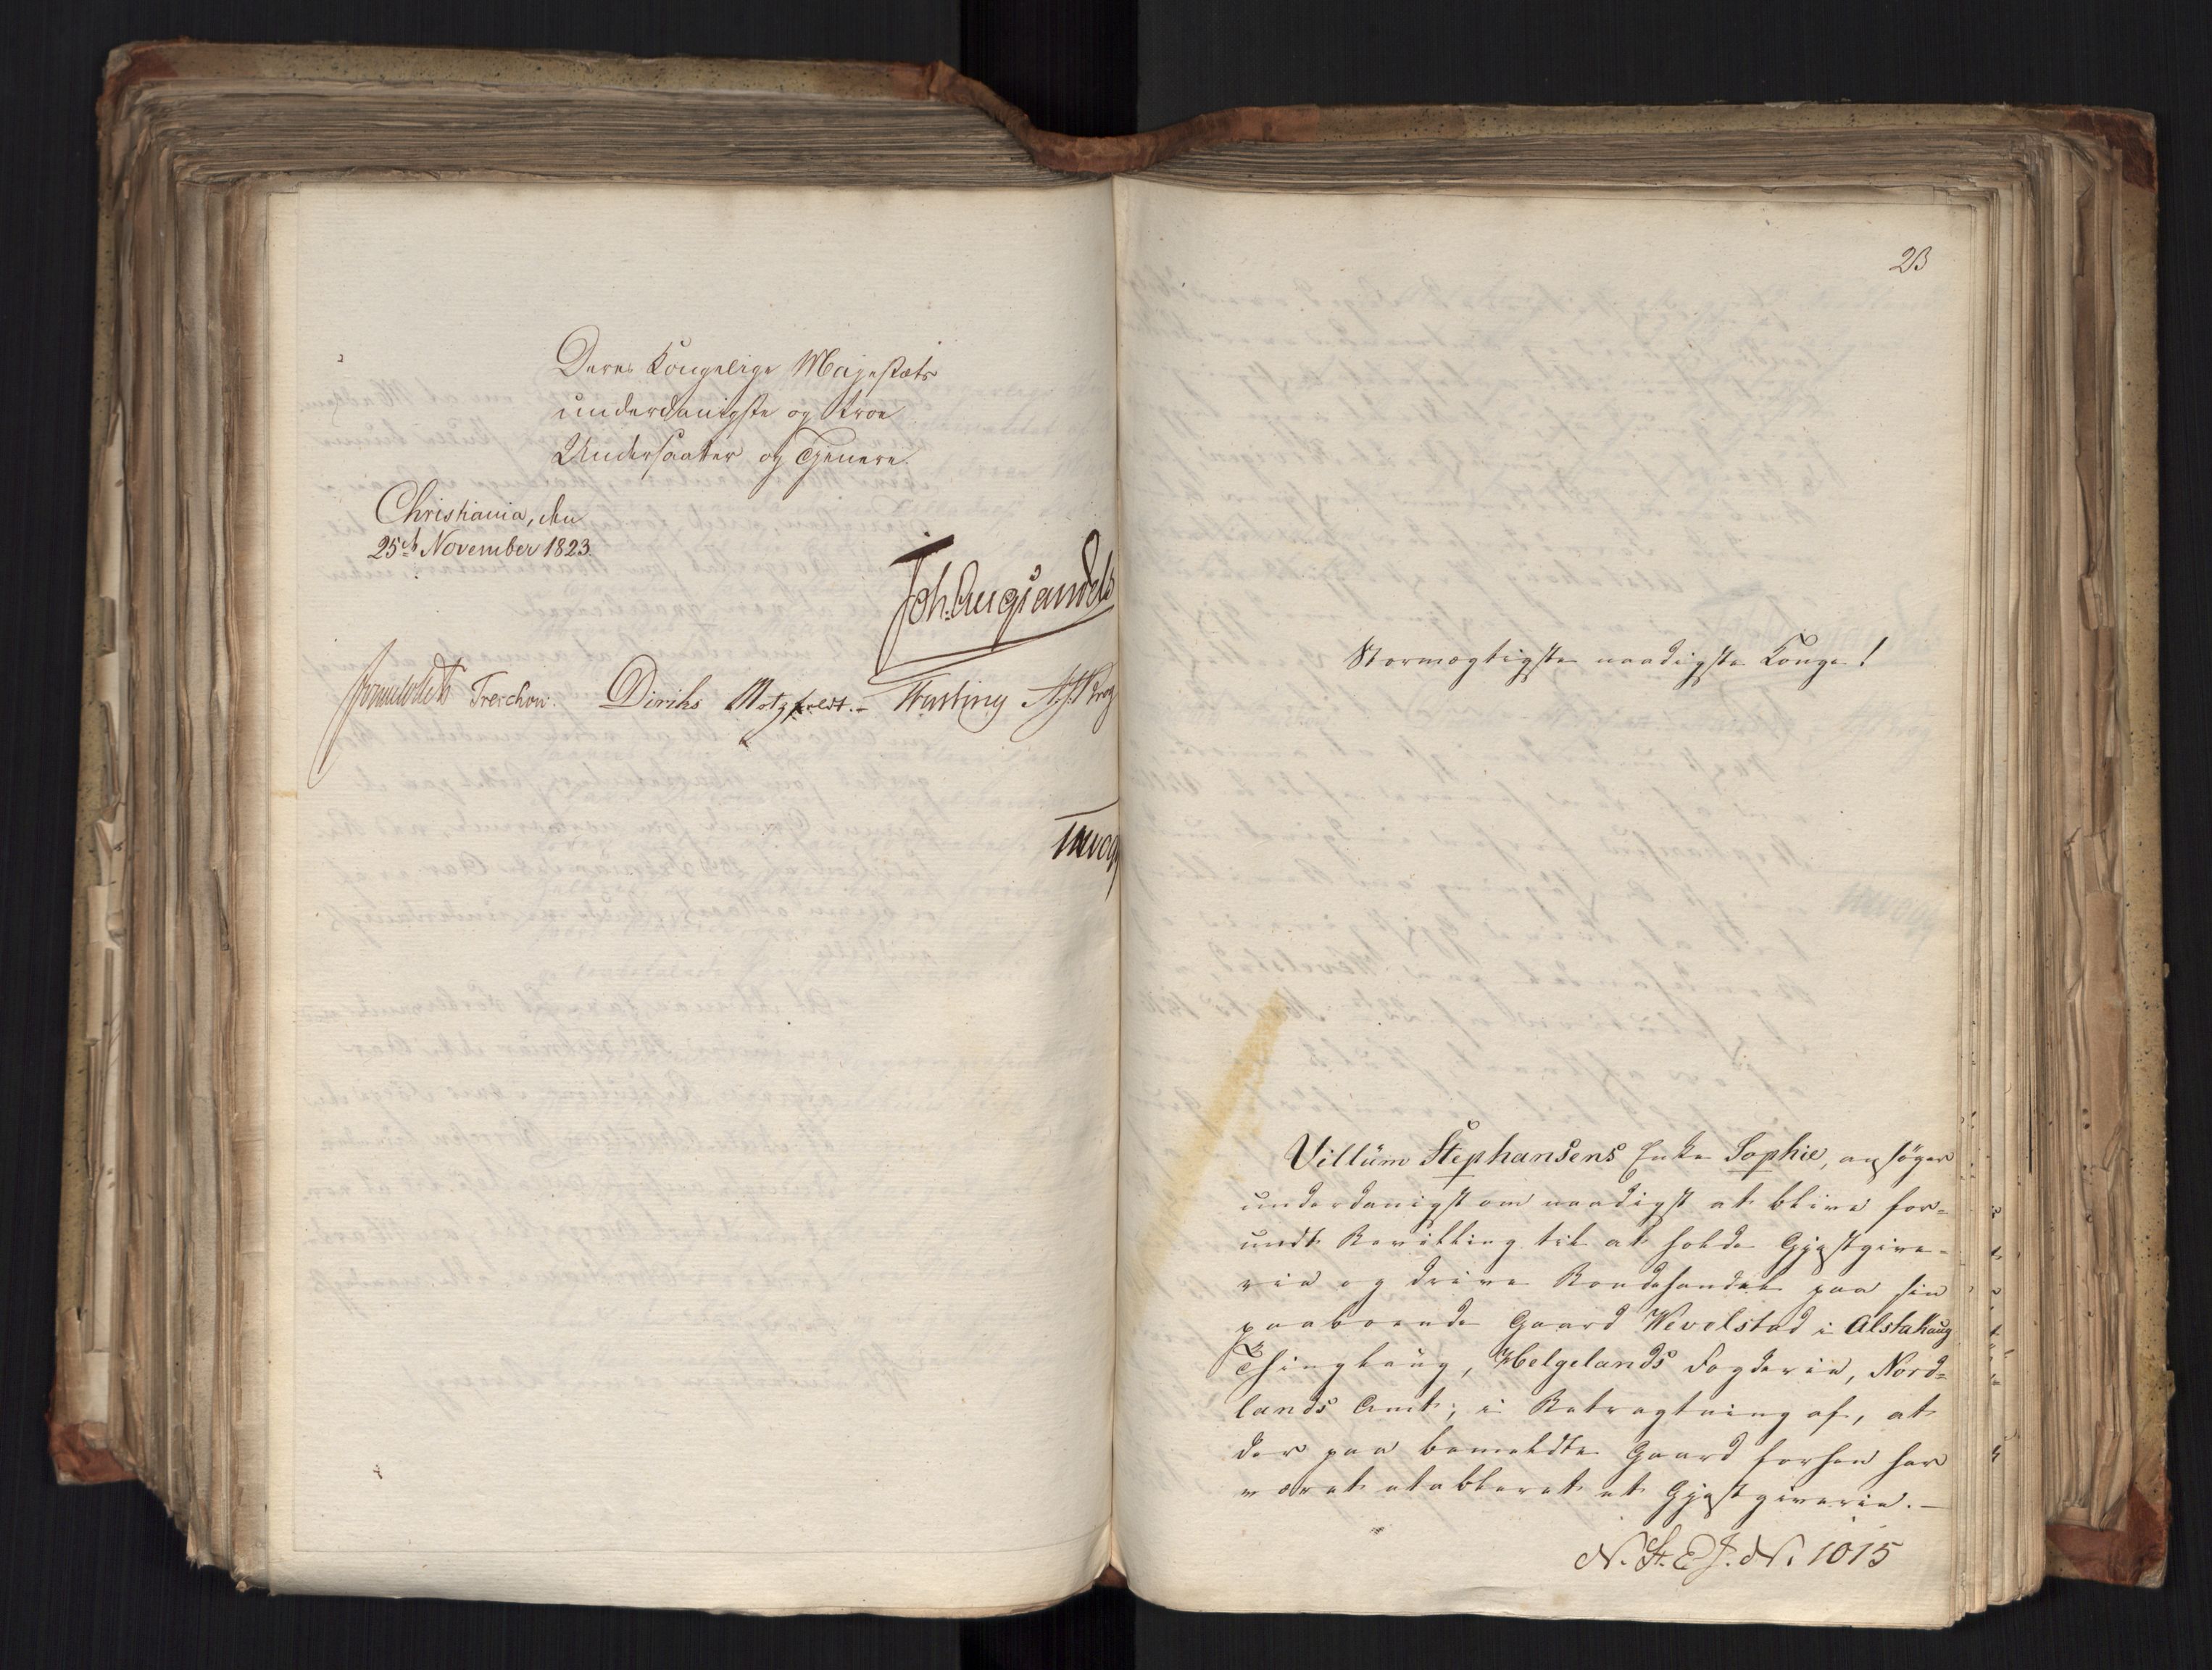 Deres Kongelige Majestæts
underdanigste og troe
Undersaatter og Tjenere.
Christiania, den
25de November 1823.
Joh. Aug. Sandels
Sommerhielm Treschow. Diriks Motzfeldt.- Fasting
23
Stormægtigste naadigste Konge!
Villum Stephansens Enke Sophie, ansøger
underdanigst om naadigst at blive for-
undt Bevilling til at holde Gjæstgive-
rie og drive Bondehandel paa sin
paaboende Gaard Wevelstad i Alstahaug
Thinglaug, Helgelands Fogderie, Nord-
lands Amt; i Betragtning af, at
der paa bemeldte Gaard forhen har
været etableret et Gjæstgiverie.-
N. St. E J. N. 1015